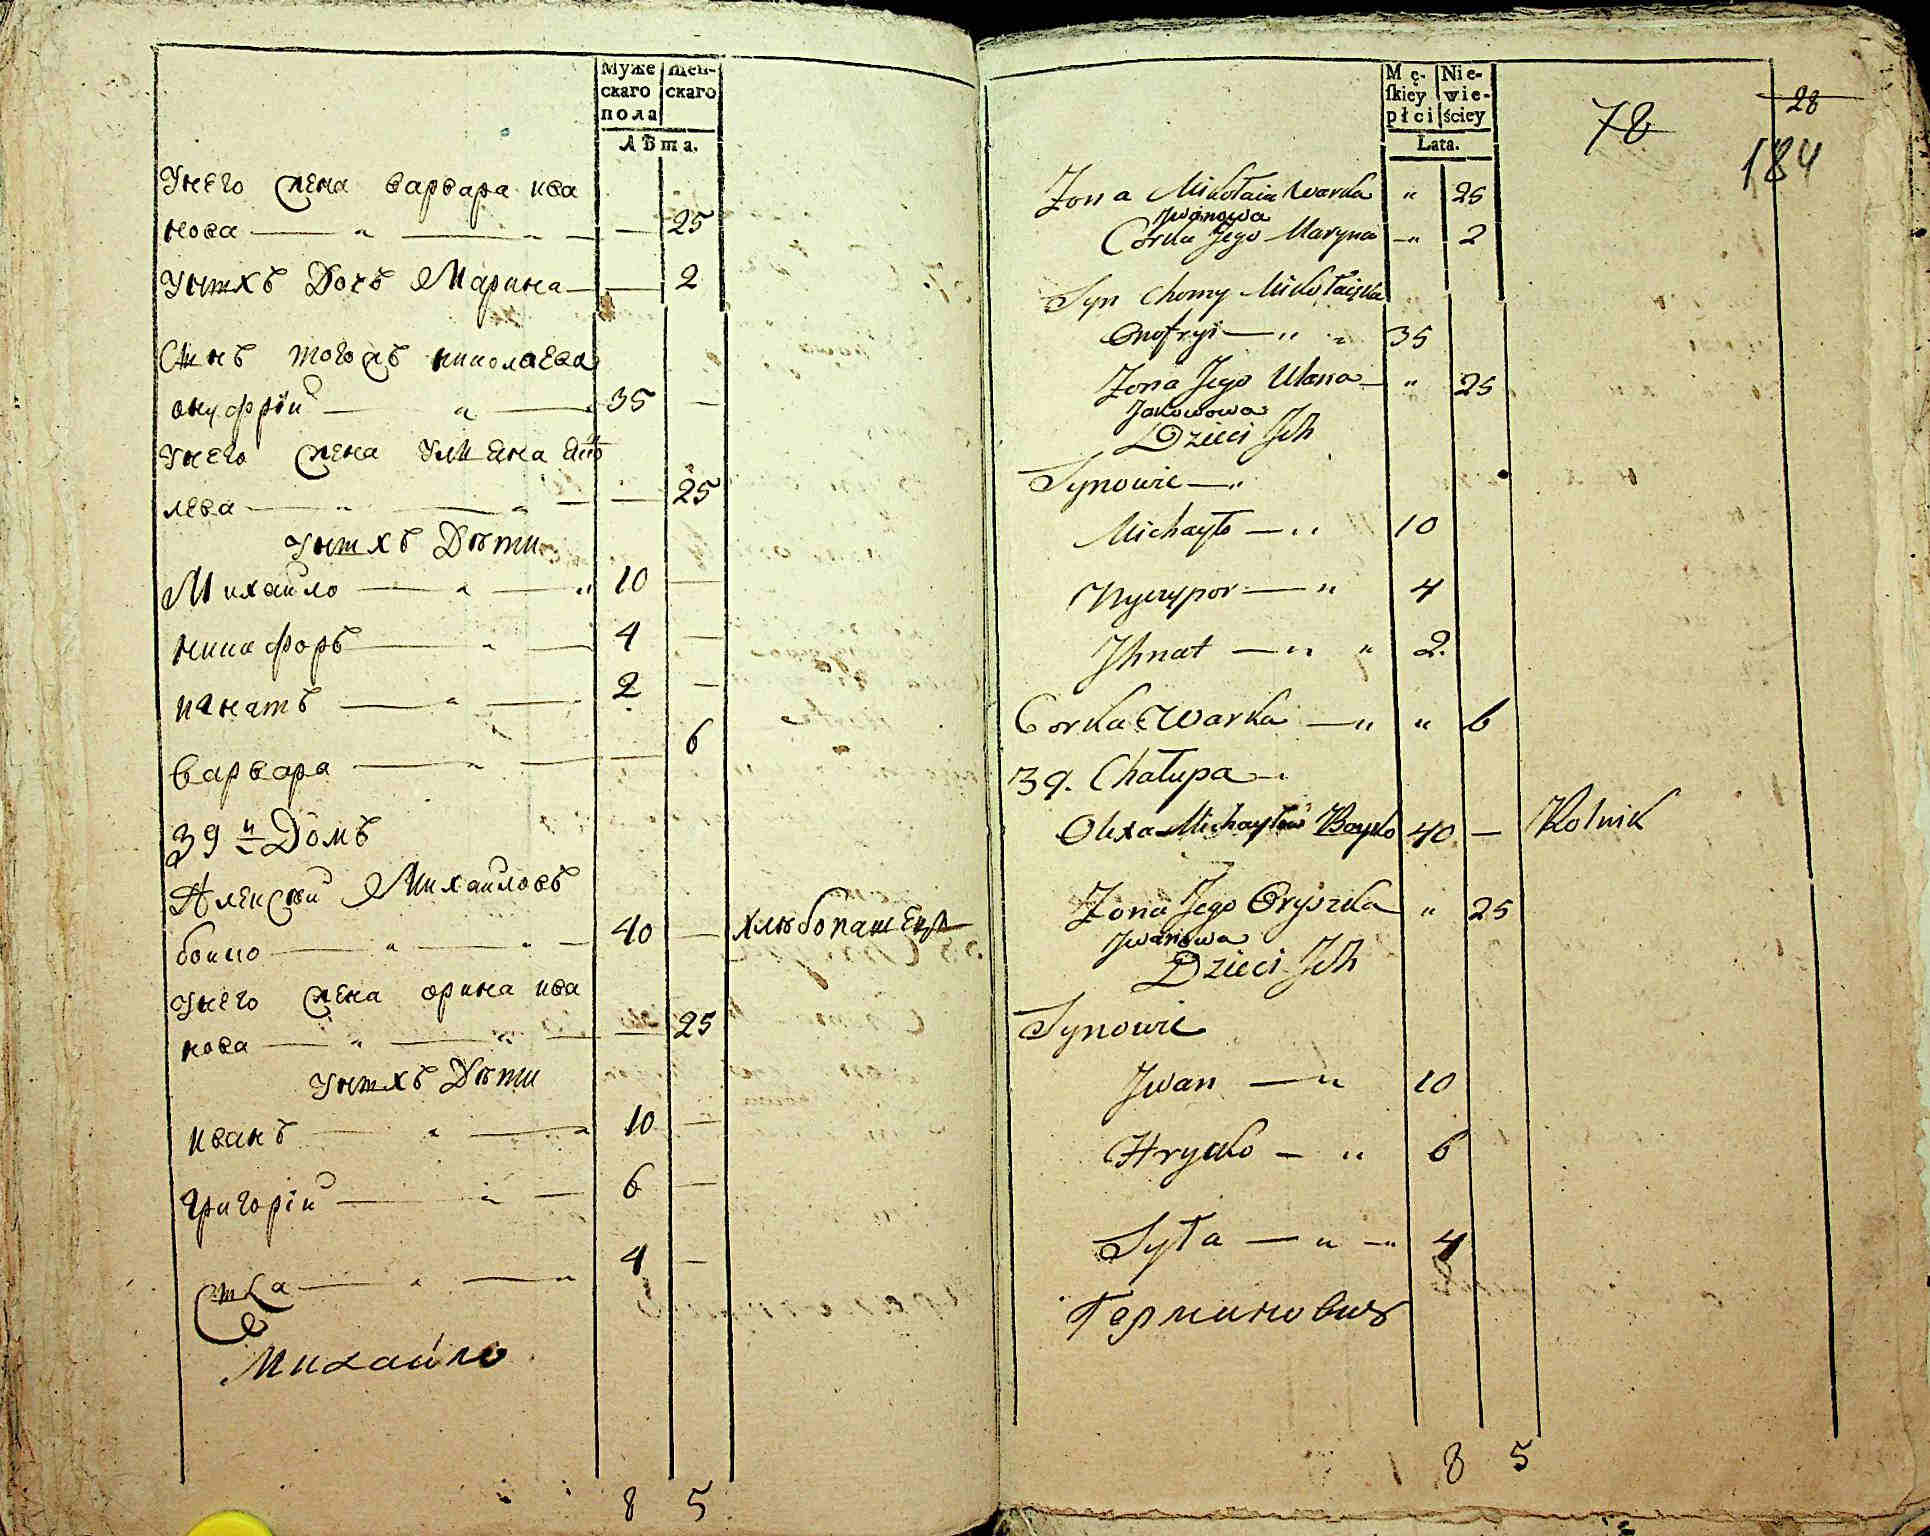 Муже
скаго
пола
Жен-
скаго
Лѣта.
Унего жена варвара ива
нова — " — " — — 25
Унихъ Дочь Марина — — 2
Сынъ тогожъ николаева
онуфрій — " — 35 —
Унего жена Улияна яко
лева — " — " — — 25
Унихъ Дѣти
Михайло — " — " 10 —
никифоръ — " — 4 —
игнатъ — " — 2 —
варвара — " — — 6
39 й Домъ
Алексѣй Михайловъ
бойко — " — " — 40 — хлѣбопашецъ
Унего жена орина ива
нова — " — " — — 25
Унихъ Дѣти
иванъ — " — " 10 —
григорій — " — 6 —
— " — " 4 —
Михайло
8 5
Mę-
skiey
płci
Nie-
wie-
ściey
Lata.
78
28
184
Zona Mikołaia Warka " 25
Iwanowa
Corka Jego Maryna — " 2
Syn Chomy Mikołaiska
Onofryi — " " 35
Zona Jego Ulana — " 25
Jakowowa
Dzieci Ich
Synowie — "
Michayło — " 10
Nyczypor — " 4
Ihnat — " " 2.
Corka Warka — " " 6
39. Chałupa —.
Olexa Michayłow Boyko 40 — Rolnik
Zona Jego Oryszka " 25
Iwanowa
Dzieci Ich
Synowie
Iwan — " 10
Hrycko — " 6
Syła — " — " 4
Германовичъ
8 5